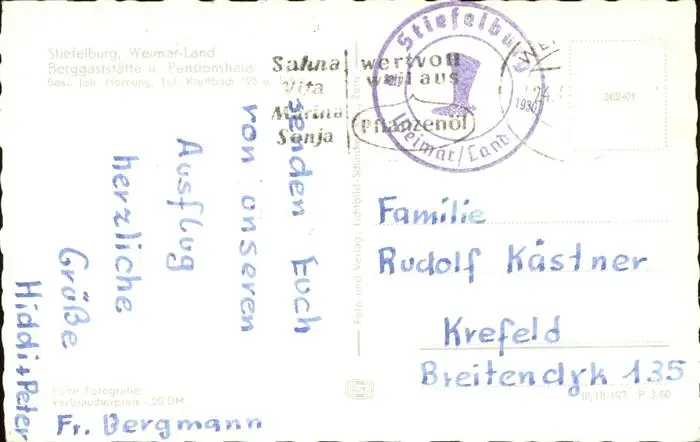 Stiefelburg, Weimar-Land
Berggaststätte u. Pensionshaus
Bes. Joh. Hornung, Tel. Klettbach
Sahna
Vita
Marina
Sonja
wertvoll
weil aus
Pflanzenöl
Stiefelburg
Weimar/Land
24.
1930
362-01
senden Euch
von unseren
Ausflug
herzliche
Grüße
Hiddi + Peter
Fr. Bergmann
Foto und Verlag, Lichtbild-
Familie
Rudolf Kästner
Krefeld
Breitendyk 135
Echte Fotografie
Verbraucherpreis -,20 DM
III/18/197 P 3/60